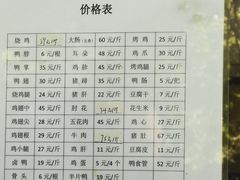 价格表
烧鸡 大肠(生重) 60元/斤 烤鸡 25元/斤
鸭脖 6元/根 耳朵 48元/斤 鸡爪 30元/斤
鸭掌 35元/斤 鸡胗 45元/斤 烤鸡腿 25元/斤
鸭翅 30元/斤 猪蹄 35元/斤 鸭肠 5元/把
鸡腿 24元/斤 猪肝 35元/斤 豆腐干 7元/斤
鸡翅中 45元/斤 肘花 花生米 9元/斤
鸡翅尖 28元/斤 五花肉 45元/斤 鸡心 27元/斤
鸡翅根 29元/斤 牛肉 猪肚 67元/斤
鸡小腿 27元/斤 鸡肝 11元/斤 豆腐皮 11元/斤
卤鸭 19元/斤 鸡蛋 5元/4个 鸭食管 52元/斤
骨头 6元/根 半片鸭 19元/斤